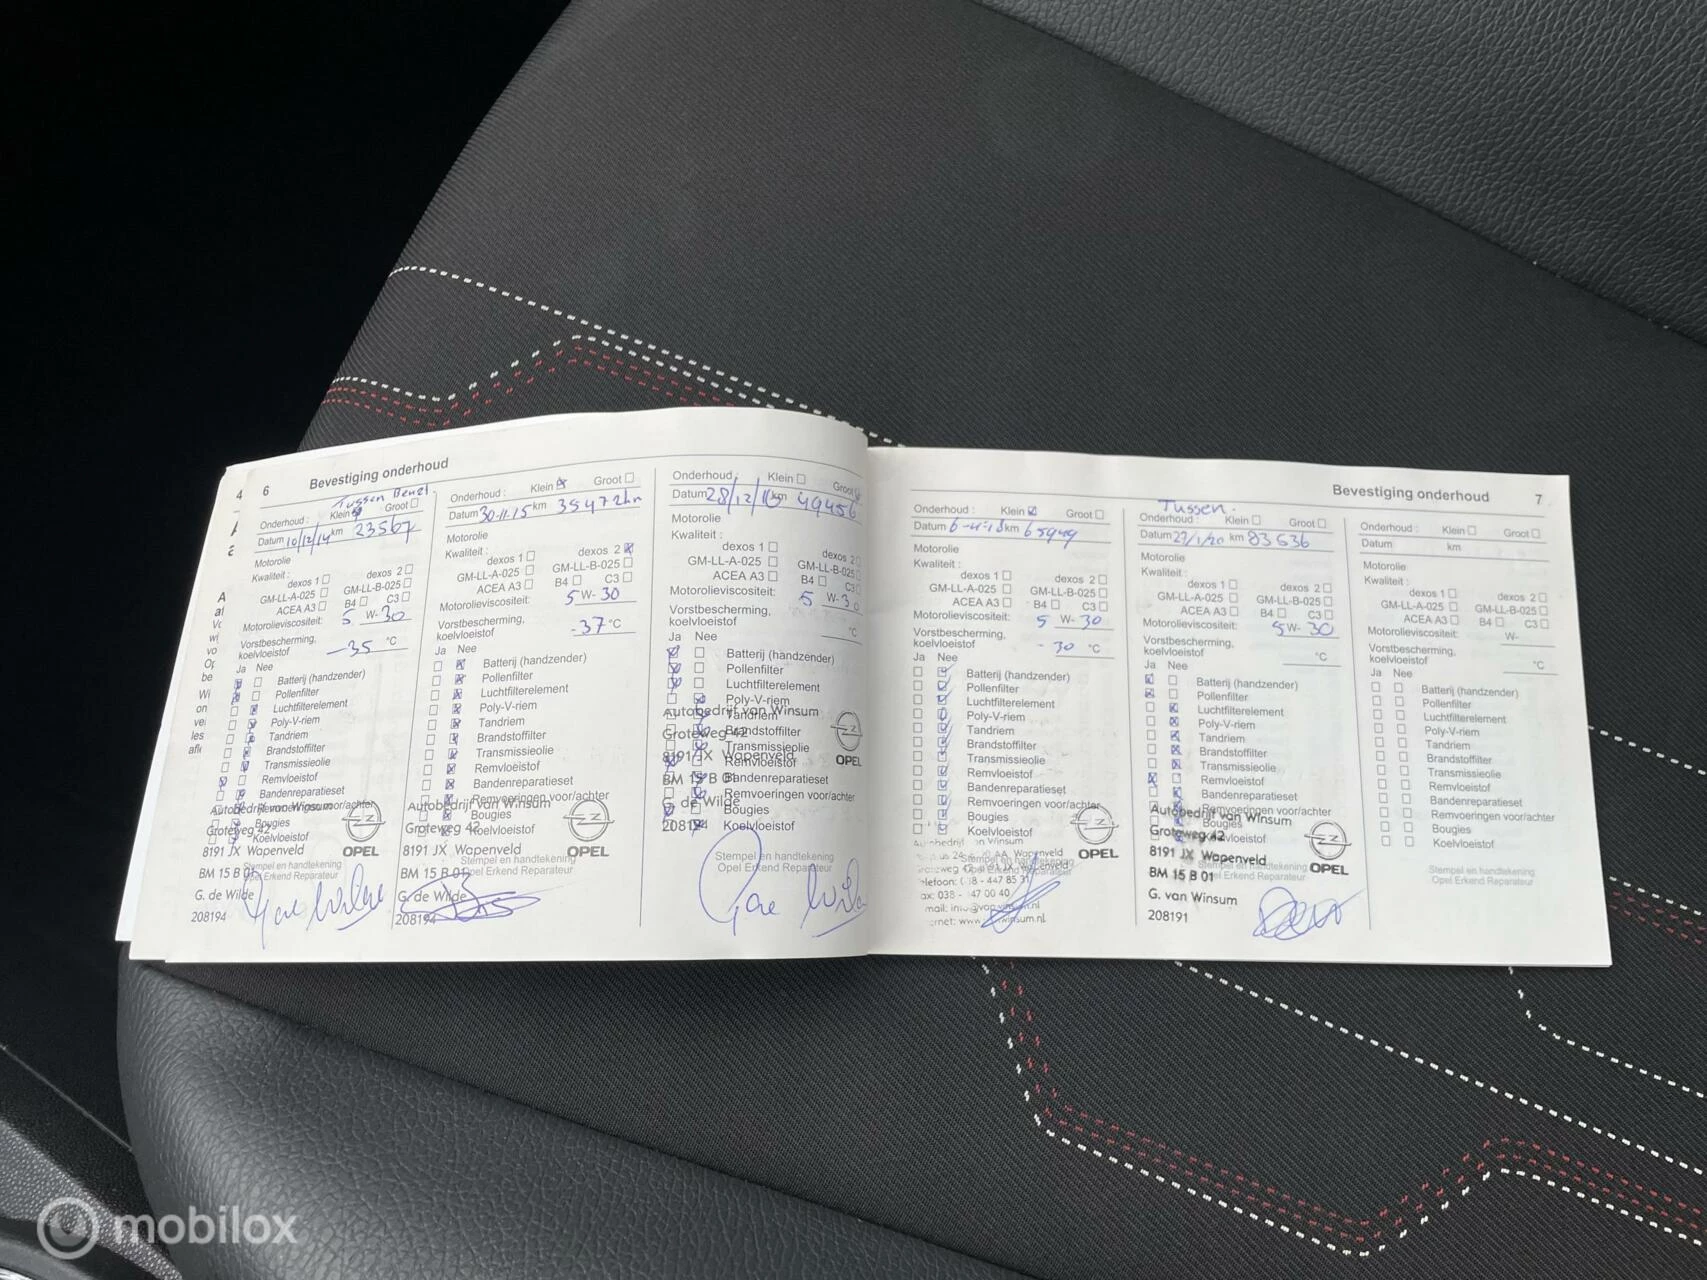 6 Bevestiging onderhoud
Tussen Beurt.
Onderhoud : Klein Groot
Datum 10/12/14 km 23567
Motorolie
Kwaliteit :
dexos 1 dexos 2
GM-LL-A-025 GM-LL-B-025
ACEA A3 B4 C3
Motorolieviscositeit: 5 W- 30
Vorstbescherming,
koelvloeistof -35 °C
Ja Nee
Batterij (handzender)
Pollenfilter
Luchtfilterelement
Poly-V-riem
Tandriem
Brandstoffilter
Transmissieolie
Remvloeistof
Bandenreparatieset
Remvoeringen voor/achter
Bougies
Koelvloeistof
Autobedrijf van Winsum
Groteweg 42
8191 JX Wapenveld
BM 15 B 01
G. de Wilde
208194
OPEL
Stempel en handtekening
Opel Erkend Reparateur
Onderhoud : Klein Groot
Datum 30-11-15 km 35472km
Motorolie
Kwaliteit :
dexos 1 dexos 2
GM-LL-A-025 GM-LL-B-025
ACEA A3 B4 C3
Motorolieviscositeit: 5 W- 30
Vorstbescherming,
koelvloeistof -37 °C
Ja Nee
Batterij (handzender)
Pollenfilter
Luchtfilterelement
Poly-V-riem
Tandriem
Brandstoffilter
Transmissieolie
Remvloeistof
Bandenreparatieset
Remvoeringen voor/achter
Bougies
Koelvloeistof
Autobedrijf van Winsum
Groteweg 42
8191 JX Wapenveld
BM 15 B 01
G. de Wilde
208194
OPEL
Stempel en handtekening
Opel Erkend Reparateur
Onderhoud : Klein Groot
Datum 28/12/16 km 49456
Motorolie
Kwaliteit :
dexos 1 dexos 2
GM-LL-A-025 GM-LL-B-025
ACEA A3 B4 C3
Motorolieviscositeit: 5 W- 30
Vorstbescherming,
koelvloeistof °C
Ja Nee
Batterij (handzender)
Pollenfilter
Luchtfilterelement
Poly-V-riem
Tandriem
Brandstoffilter
Transmissieolie
Remvloeistof
Bandenreparatieset
Remvoeringen voor/achter
Bougies
Koelvloeistof
Autobedrijf van Winsum
Groteweg 42
8191 JX Wapenveld
BM 15 B 01
G. de Wilde
208194
OPEL
Stempel en handtekening
Opel Erkend Reparateur
Bevestiging onderhoud 7
Onderhoud : Klein Groot
Datum 6-4-18 km 65949
Motorolie
Kwaliteit :
dexos 1 dexos 2
GM-LL-A-025 GM-LL-B-025
ACEA A3 B4 C3
Motorolieviscositeit: 5 W- 30
Vorstbescherming,
koelvloeistof - 30 °C
Ja Nee
Batterij (handzender)
Pollenfilter
Luchtfilterelement
Poly-V-riem
Tandriem
Brandstoffilter
Transmissieolie
Remvloeistof
Bandenreparatieset
Remvoeringen voor/achter
Bougies
Koelvloeistof
OPEL
Stempel en handtekening
Opel Erkend Reparateur
Tussen.
Onderhoud : Klein Groot
Datum 27/1/20 km 83636
Motorolie
Kwaliteit :
dexos 1 dexos 2
GM-LL-A-025 GM-LL-B-025
ACEA A3 B4 C3
Motorolieviscositeit: 5 W- 30
Vorstbescherming,
koelvloeistof °C
Ja Nee
Batterij (handzender)
Pollenfilter
Luchtfilterelement
Poly-V-riem
Tandriem
Brandstoffilter
Transmissieolie
Remvloeistof
Bandenreparatieset
Remvoeringen voor/achter
Bougies
Koelvloeistof
Autobedrijf van Winsum
Groteweg 42
8191 JX Wapenveld
BM 15 B 01
G. van Winsum
208191
OPEL
Stempel en handtekening
Opel Erkend Reparateur
Onderhoud : Klein Groot
Datum km
Motorolie
Kwaliteit :
dexos 1 dexos 2
GM-LL-A-025 GM-LL-B-025
ACEA A3 B4 C3
Motorolieviscositeit: W-
Vorstbescherming,
koelvloeistof °C
Ja Nee
Batterij (handzender)
Pollenfilter
Luchtfilterelement
Poly-V-riem
Tandriem
Brandstoffilter
Transmissieolie
Remvloeistof
Bandenreparatieset
Remvoeringen voor/achter
Bougies
Koelvloeistof
Stempel en handtekening
Opel Erkend Reparateur
mobilox